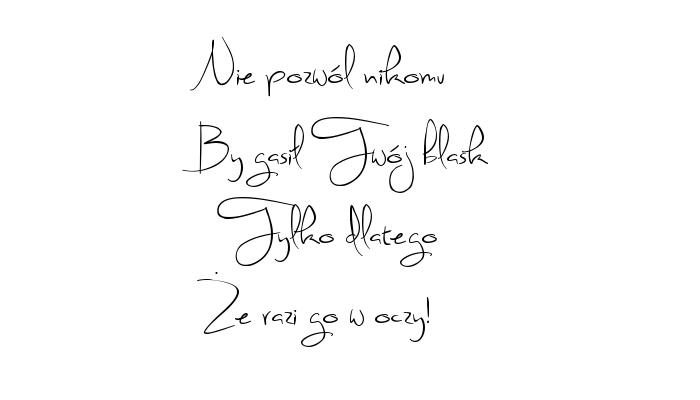 Nie pozwól nikomu
By gasił Twój blask
Tylko dlatego
Że razi go w oczy!